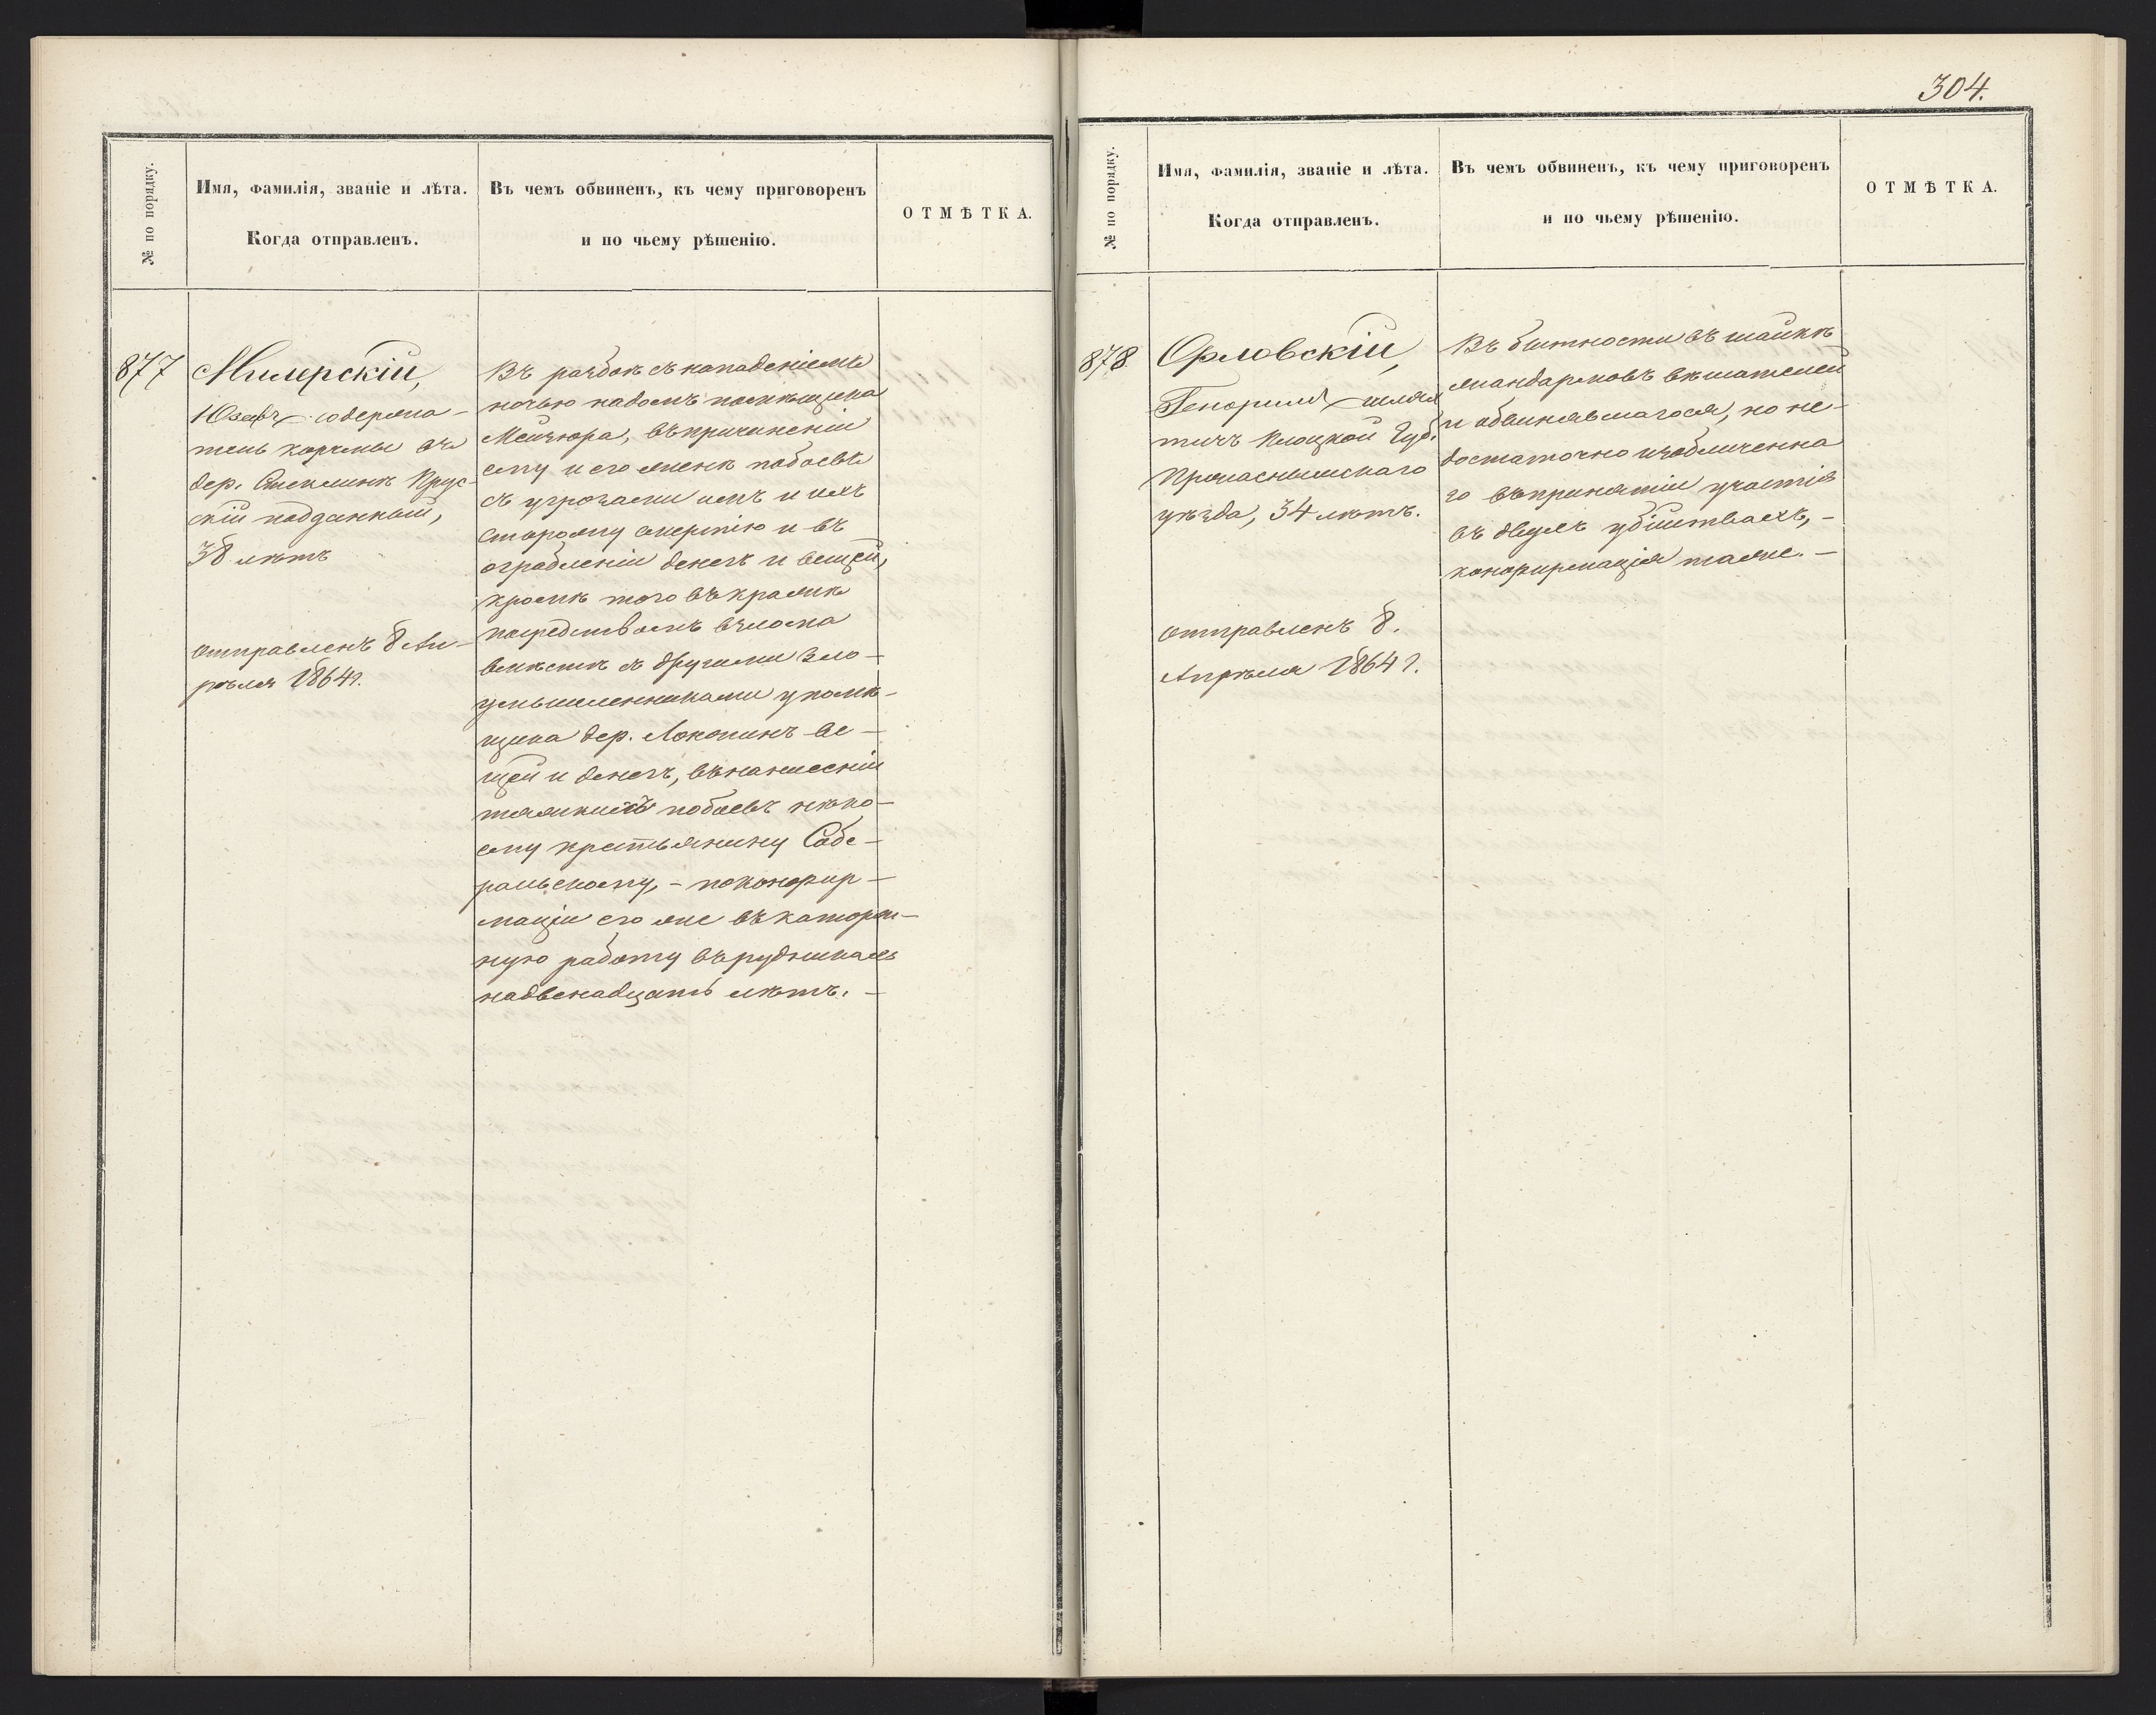 304.
№ по порядку.
Имя, фамилія, званіе и лѣта.
Когда отправленъ.
Въ чемъ обвиненъ, къ чему приговоренъ
и по чьему рѣшенію.
ОТМѢТКА.
877
Милерскій,
Юзефъ – содержа-
тель корчмы въ
дер. Прус-
скій подданный,
38 лѣтъ
отправленъ 8 Ап-
рѣля 1864 г.
Въ разбоѣ съ нападеніемъ
ночью на домъ помѣщика
въ причиненіи
ему и его женѣ побоевъ
съ угрозами имъ и ихъ
смертію и въ
ограбленіи денегъ и вещей,
кромѣ того въ кражѣ
посредствомъ взлома
вмѣстѣ съ другими зло-
умышленниками у помѣ-
щика дер. ве-
щей и денегъ, въ нанесеніи
тяжкихъ побоевъ нѣко-
ему крестьянину Собе-
ральскому, – по конфир-
маціи его же въ каторж-
ную работу въ рудникахъ
на двенадцать лѣтъ. –
№ по порядку.
Имя, фамилія, званіе и лѣта.
Когда отправленъ.
Въ чемъ обвиненъ, къ чему приговоренъ
и по чьему рѣшенію.
ОТМѢТКА.
878
Орловскій,
шлях
тичъ Плоцкой Губ.
Прашнышскаго
уѣзда, 34 лѣтъ.
отправленъ 8.
Апрѣля 1864 г.
Въ бытности въ шайкѣ
жандармовъ вѣшателей
и обвинявшагося, но не-
достаточно изобличенна
го въ принятіи участія
въ двухъ убійствахъ, –
конфирмація таже. –